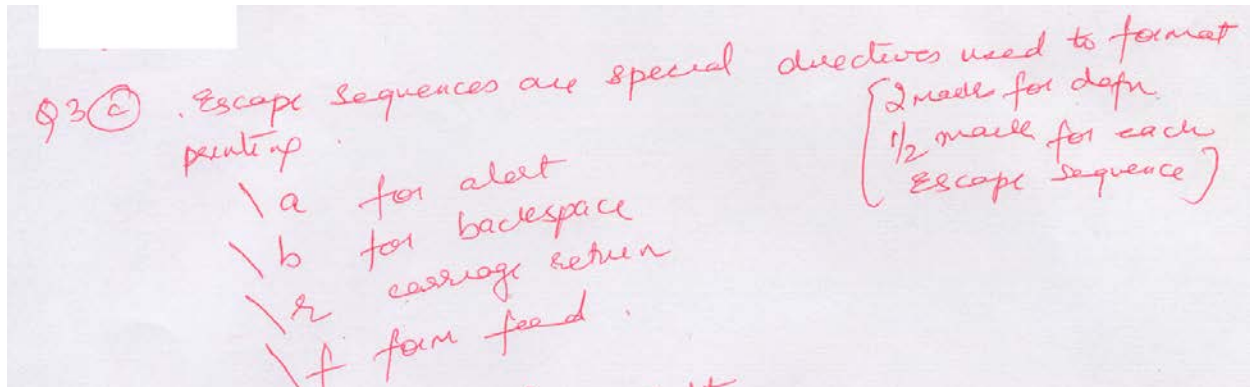 Q3 (a) . Escape Sequences are special directives used to format
printing .
[2 marks for defn
1/2 mark for each
Escape Sequence]
\a for alert
\b for backspace
\r carriage return
\f form feed .